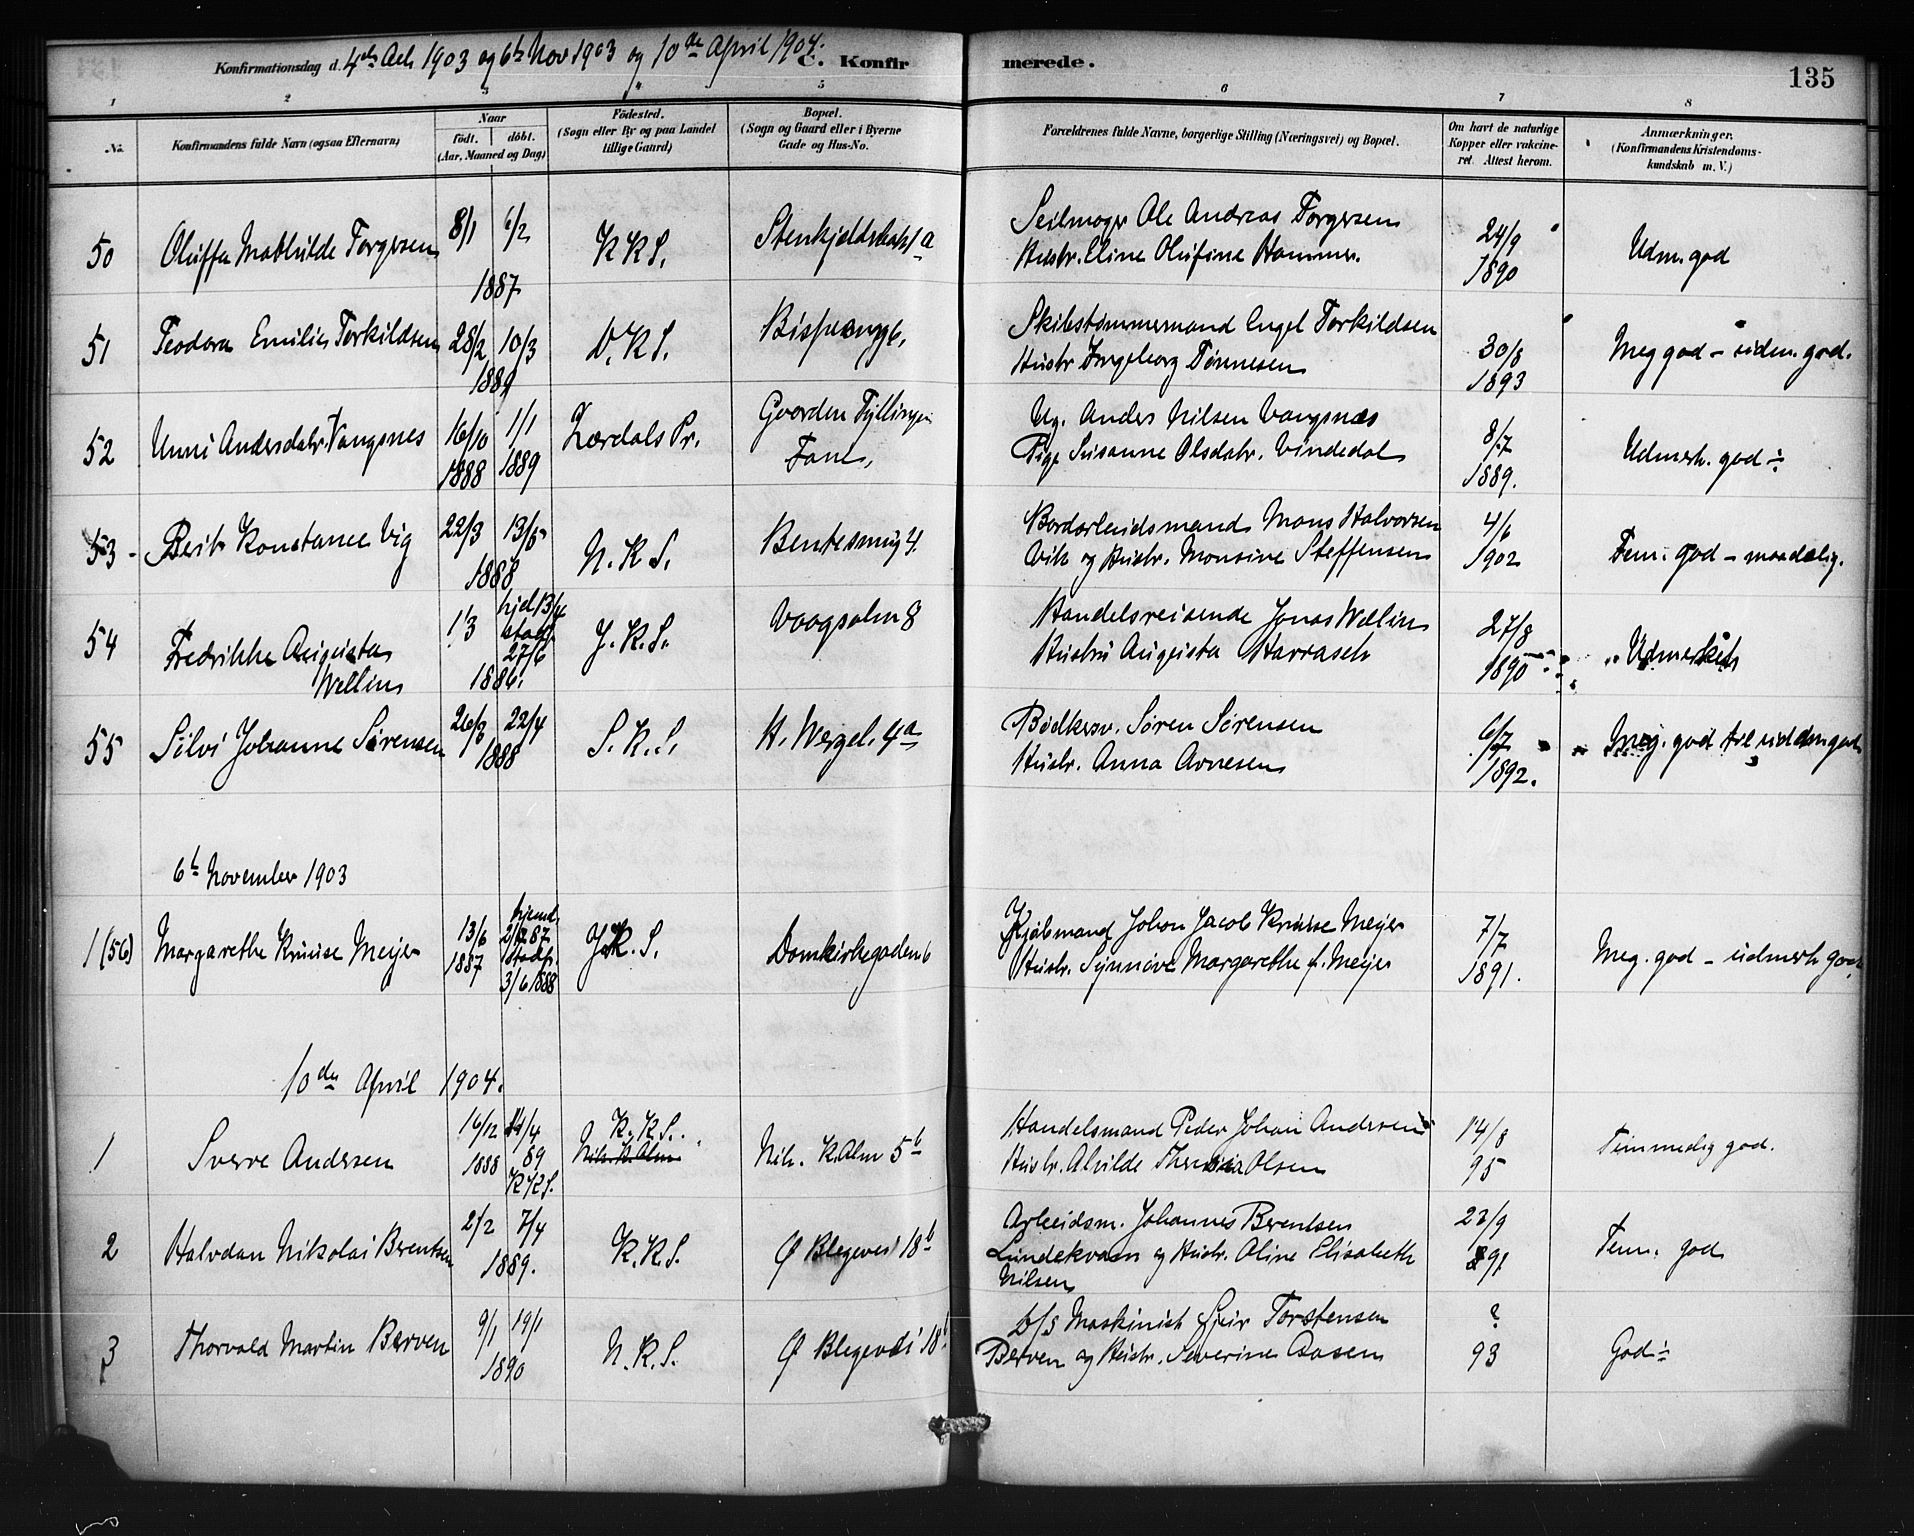 Konfirmationsdag d. 4de Oct. 1903 og 6te Nov 1903 og 10de April 1904. C. Konfirmerede. 135
1 2 3 4 5 6 7 8
No. Konfirmandens fulde Navn (ogsaa Efternavn) Naar födt. döbt. (Aar, Maaned og Dag) Födested. (Sogn eller By og paa Landet tillige Gaard) Bopæl. (Sogn og Gaard eller i Byerne Gade og Hus-No. Forældrenes fulde Navne, borgerlige Stilling (Næringsvei) og Bopæl. Om havt de naturlige Kopper eller vakcineret. Attest herom. Anmærkninger. (Konfirmandens Kristendomskundskab m. V.)
50 Oluffa Mathilde Torgersen 8/1 6/2 1887 K.K.S. Stenkjeldsbak 1a Seilmager Ole Andreas Torgersen
Hustr. Eline Olufine Hammer. 24/9 1890 Udm. god
51 Teodora Emilie Torkildsen 28/2 10/3 1889 D.K.S. Bispeeng 6. Skibstømmermand Engel Torkildsen
Hustr Ingeborg Tønnesen 30/8 1893 Meg god - udm. god.
52 Unni Andersdatr. Vangsnes 16/10 1888 1/1 1889 Lærdals Pr. Gaarden Tyllingen Fane, Ug. Anders Nilsen Vangsnæs
Pige Susanne Olsdatr. Vindedal 8/7 1889. Udmerk. god ÷
53 - Berit Konstance Vig 22/3 13/5 1888 N.K.S. Bentesmug 4. Bordarbeidsmand Mons Halvorsen
Vik og Hustr. Monsine Steffensen 4/6 1902 Tem. god - maadelig.
54 Fredrikke Augusta Wellin 1/3 hjd 13/4 stadf. 27/6 1886. J.K.S. Vaagsalm 8 Handelsreisende Jonas Wellin
Hustru Augusta Harrasch 27/8 1890 Udmerket
55 Silvi Johanne Sørensen 26/3 22/4 1888 S.K.S. H. Wergel. 4a Bødkersv. Søren Sørensen
Hustr. Anna Arnesen 6/7 1892. Meg. god til udm god
6te November 1903
1 (56) Margarethe Kruuse Meijer 13/6 1887 hjemd. stadf. 3/6 1888 J.K.S. Domkirkegaden 6 Kjøbmand Johan Jacob Kruuse Meijer
Hustr. Synnøve Margarethe f. Meijer 7/7 1891. Meg. god - udmerk god
10de April 1904.
1 Sverre Andersen 16/12 1888 /4 89 K.K.S. K.K.S. Nik. K. Alm Nik. K. Alm 5b Handelsmand Peder Johan Andersen
Hustr. Alvilde Olsen 14/8 95 Temmelig god.
2 Halvdan Nikolai Berentsen 2/2 7/4 1889. K.K.S. Ø Blegevei 18b Arbeidsm. Johannes Berentsen
Lundekvam og Hustr. Aline Elisabeth
Nilsen 23/9 891 Tem. god
3 Thorvald Martin Berven 9/1 19/1 1890 N.K.S. Ø Blegevei 18b D/S Maskinist Geir Torstensen
Berven og Hustr. Severine Aasen ? 93 God ÷